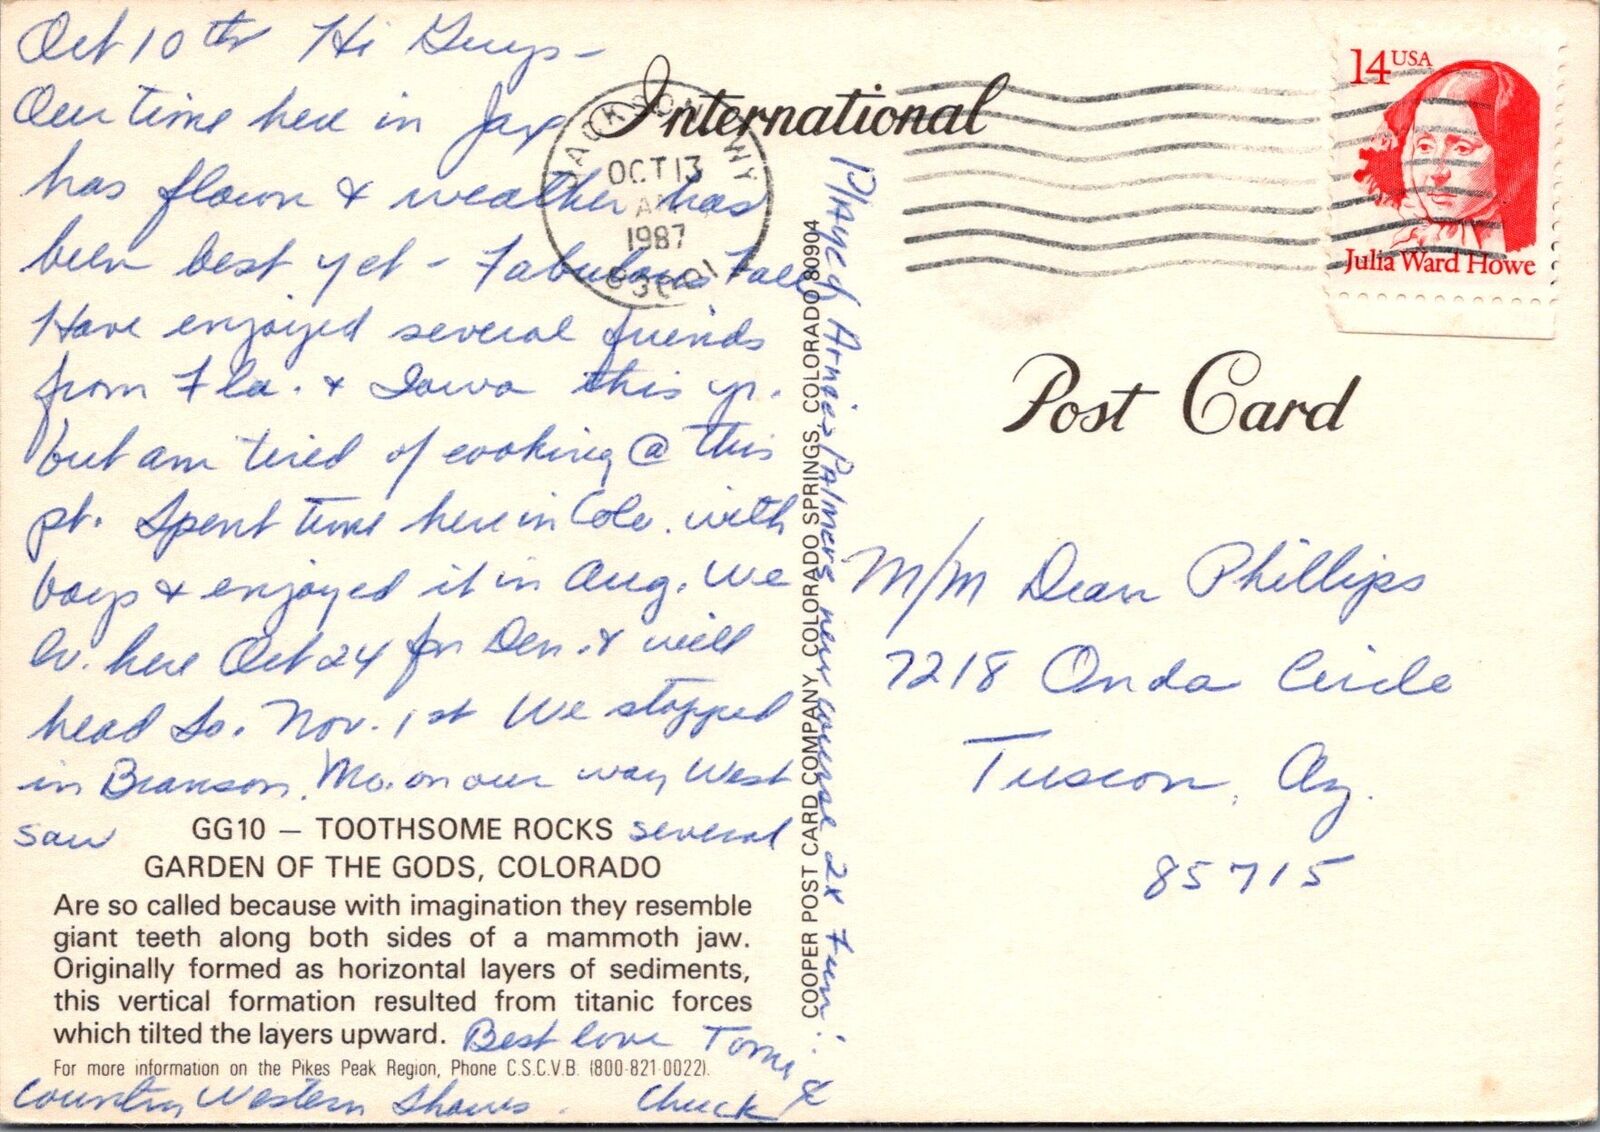 Oct 10th Hi Guys -
Our time here in Jax
has flown & weather has
been best yet - Fabulous Fall
Have enjoyed several friends
from Fla. & Iowa this yr.
but am tired of cooking @ this
pt. Spent time here in Colo. with
boys & enjoyed it in Aug. We
lv. here Oct 24 for Den. & will
head So. Nov. 1st We stopped
in Branson, Mo. on our way West
saw several
Country Western Shows.
Best love Tomi &
Chuck
Played Arnie Palmers new course 2x Fun!
GG10 — TOOTHSOME ROCKS
GARDEN OF THE GODS, COLORADO
Are so called because with imagination they resemble
giant teeth along both sides of a mammoth jaw.
Originally formed as horizontal layers of sediments,
this vertical formation resulted from titanic forces
which tilted the layers upward.
For more information on the Pikes Peak Region, Phone C.S.C.V.B. (800-821-0022).
COOPER POST CARD COMPANY, COLORADO SPRINGS, COLORADO 80904
International
Post Card
JACKSON WY
OCT 13
AM
1987
14 USA
Julia Ward Howe
M/M Dean Phillips
7218 Onda Circle
Tuscon, Az.
85715